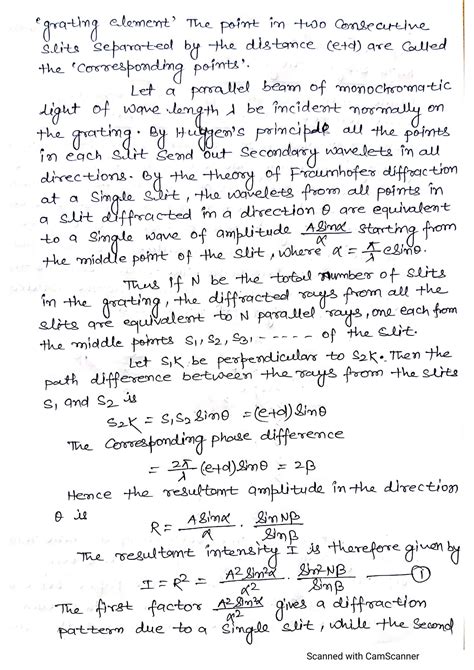 'grating element' The point in two Consecutive
slits separated by the distance (e+d) are called
the 'corresponding points'.
Let a parallel beam of monochromatic
light of wave length λ be incident normally on
the grating. By Huygen's principle all the points
in each slit send out secondary wavelets in all
directions. By the theory of Fraunhofer diffraction
at a single slit, the wavelets from all points in
a slit diffracted in a direction θ are equivalent
to a single wave of amplitude A sinα/α starting from
the middle point of the slit, where α = π/λ e sinθ.
Thus if N be the total number of slits
in the grating, the diffracted rays from all the
slits are equivalent to N parallel rays, one each from
the middle points S1, S2, S3, ----- of the slit.
Let S1K be perpendicular to S2K. Then the
path difference between the rays from the slits
S1 and S2 is
S2K = S1S2 Sinθ = (e+d) Sinθ
The corresponding phase difference
= 2π/λ (e+d) Sinθ = 2β
Hence the resultant amplitude in the direction
θ is
R = A Sinα/α . Sin Nβ/Sin β
The resultant intensity I is therefore given by
I = R² = A² Sin²α/α² . Sin² Nβ/Sin β —— ①
The first factor A² Sin²α/α² gives a diffraction
pattern due to a single slit, while the second
Scanned with CamScanner